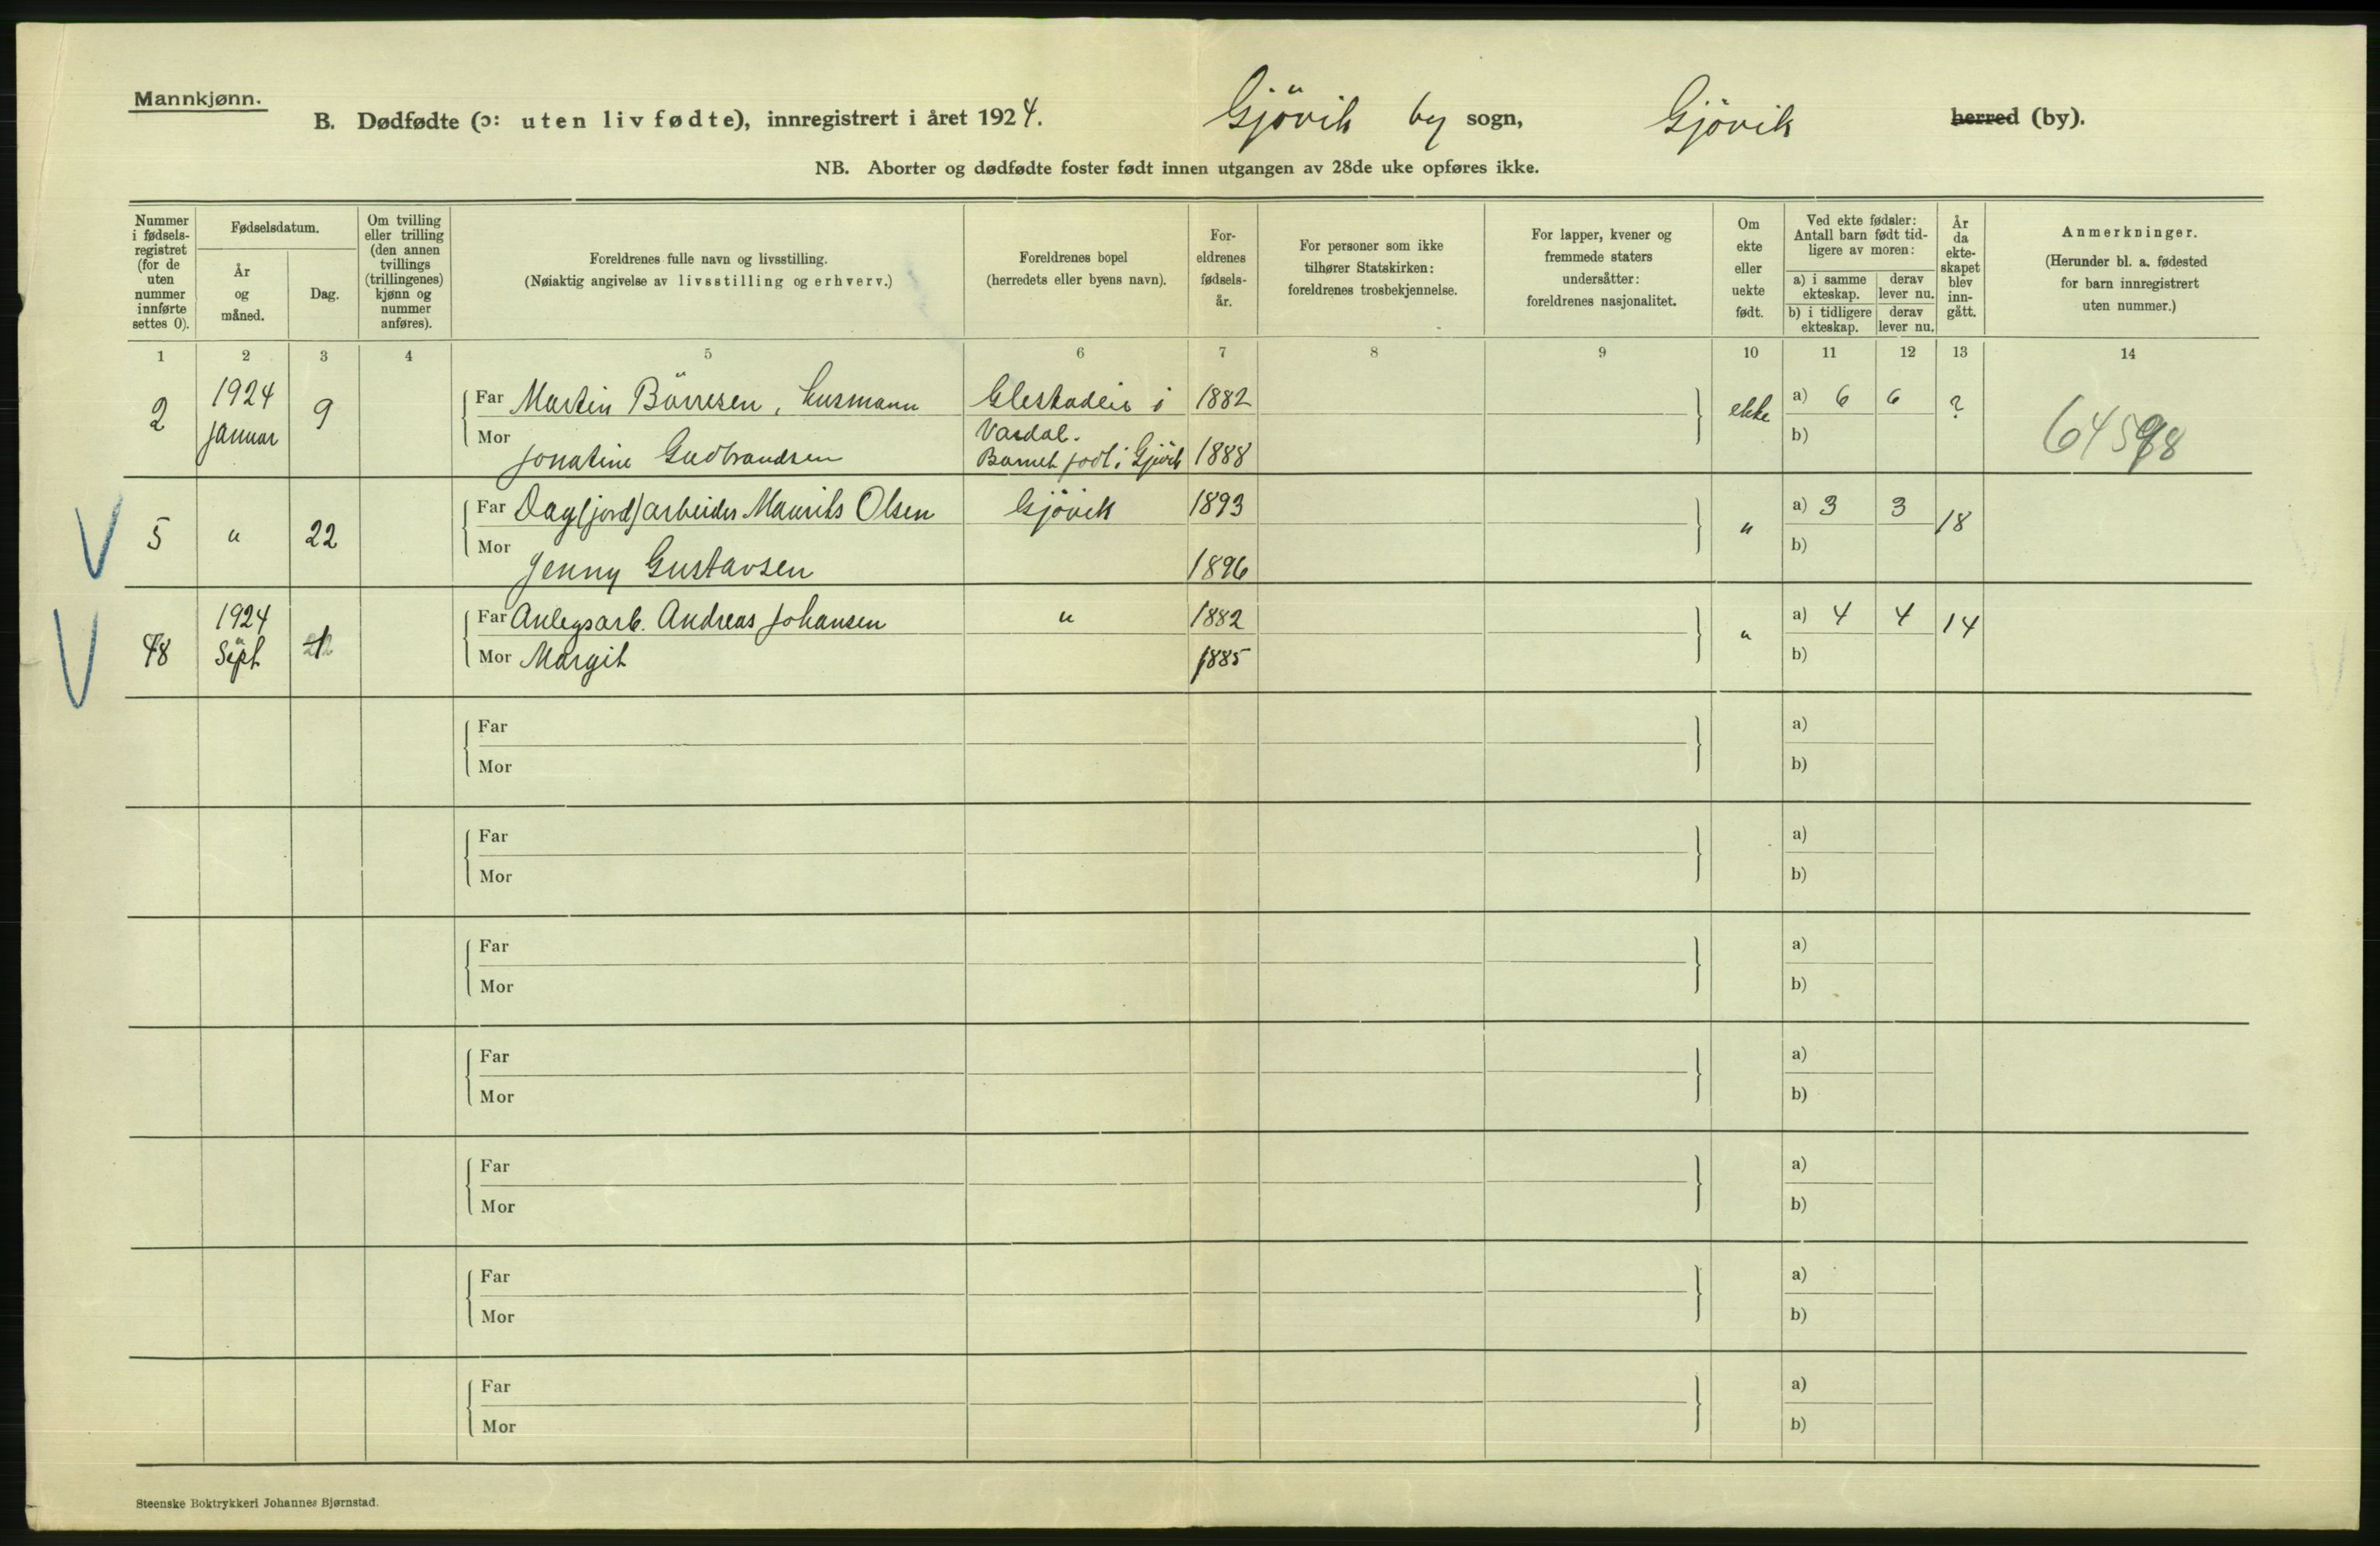 Mannkjønn.
B. Dødfødte (ɔ: uten liv fødte), innregistrert i året 1924. Gjövik by sogn, Gjövik herred (by).
NB. Aborter og dødfødte foster født innen utgangen av 28de uke opføres ikke.
Nummer i fødsels-registret (for de uten nummer innførte settes 0).
Fødselsdatum.
År og måned.
Dag.
Om tvilling eller trilling (den annen tvillings (trillingenes) kjønn og nummer anføres).
Foreldrenes fulle navn og livsstilling.
(Nøiaktig angivelse av livsstilling og erhverv.)
Foreldrenes bopel
(herredets eller byens navn).
For-eldrenes fødsels-år.
For personer som ikke tilhører Statskirken: foreldrenes trosbekjennelse.
For lapper, kvener og fremmede staters undersåtter: foreldrenes nasjonalitet.
Om ekte eller uekte født.
Ved ekte fødsler: Antall barn født tid-ligere av moren:
a) i samme ekteskap.
derav lever nu.
b) i tidligere ekteskap.
derav lever nu.
År da ekte-skapet blev inn-gått.
Anmerkninger.
(Herunder bl. a. fødested for barn innregistrert uten nummer.)
1 2 3 4 5 6 7 8 9 10 11 12 13 14
2 1924 januar 9 Far Martin Börresen, husmann 1882 ekte a) 6 6 ?
Mor Jonatine Gudbrandsen Vardal. Barnet født i Gjövik 1888 b)
5 " 22 Far Dag(jord)arbeider Maurits Olsen Gjövik 1893 " a) 3 3 18
Mor Jenny Gustavsen 1896 b)
48 1924 Sept Far Anlegsarb. Andreas Johansen " 1882 " a) 4 4 14
Mor Margit 1885 b)
Far a)
Mor b)
Far a)
Mor b)
Far a)
Mor b)
Far a)
Mor b)
Far a)
Mor b)
Far a)
Mor b)
Far a)
Mor b)
Steenske Boktrykkeri Johannes Bjørnstad.